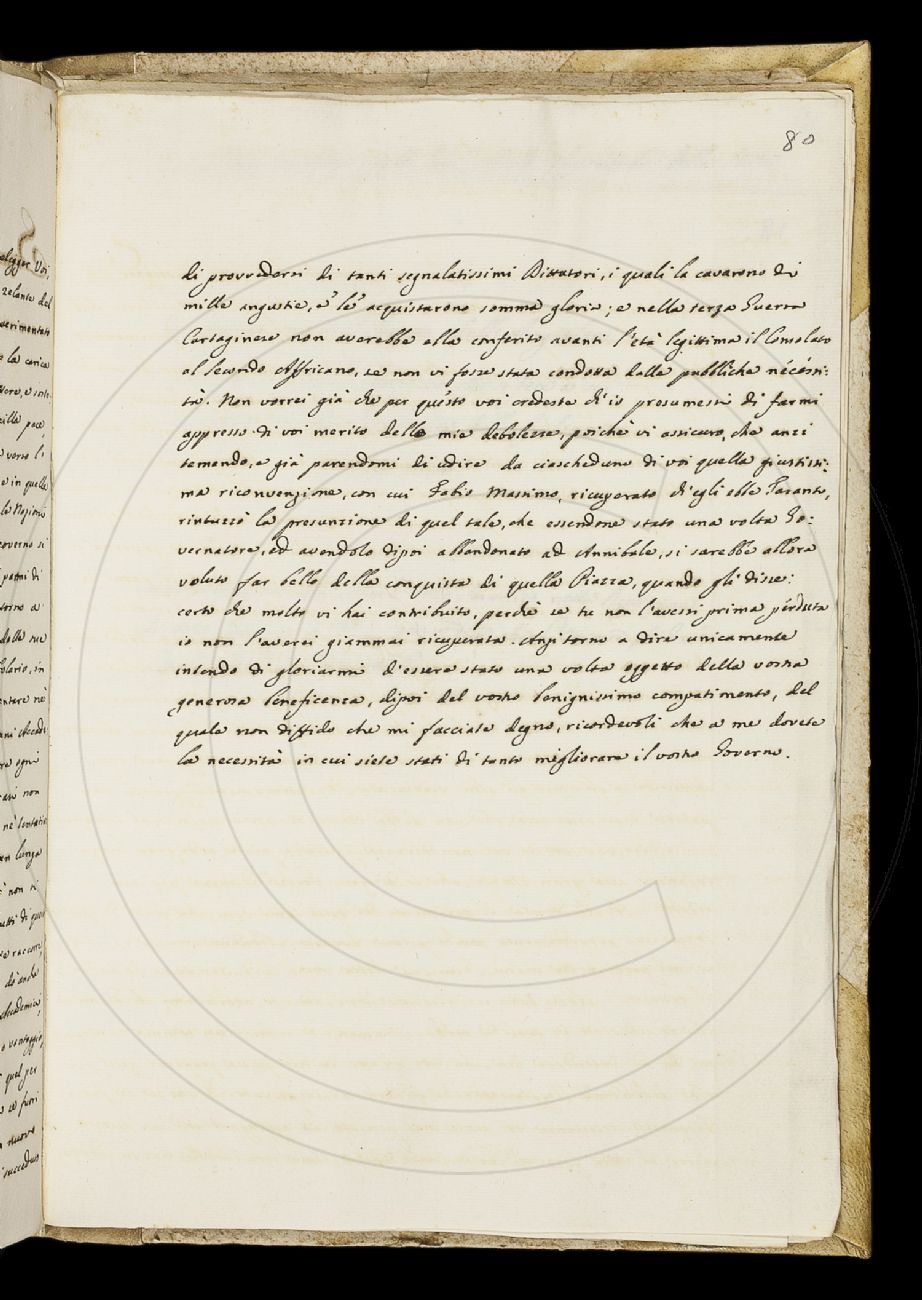 80
di provvedersi di tanti segnalatissimi Dittatori, i quali la cavarono di
mille angustie, e le acquistarono somma gloria; e nella terza Guerra
Cartaginese non averebbe ella conferito avanti l'età legittima il Consolato
al secondo Affricano, se non vi fosse stata condotta dalle pubbliche necéssi:
tà. Non vorrei già che per questo voi credeste ch'io presumessi di farmi
appresso di voi merito della mia debolezza, poichè vi assicuro, che anzi
temendo, e già parendomi di udire da ciascheduno di voi quella giustissi:
ma riconvenzione, con cui Fabio Massimo, ricuperato ch'egli ebbe Taranto,
rintuzzò la presunzione di quel tale, che essendone stato una volta Go:
vernatore, ed avendolo dipoi abbandonato ad Annibale, si sarebbe allora
voluto far bello della conquista di quella Piazza, quando gli disse:
certo che molto vi hai contribuito, perchè se tu non l'avessi prima perduta
io non l'averei giammai ricuperata. Anzi torno a dire unicamente
intendo di gloriarmi d'essere stato una volta oggetto della vostra
generosa beneficenza, dipoi del vostro benignissimo compatimento, del
quale non diffido che mi facciate degno, ricordevoli che a me dovete
la necessità in cui siete stati di tanto migliorare il vostro Governo.